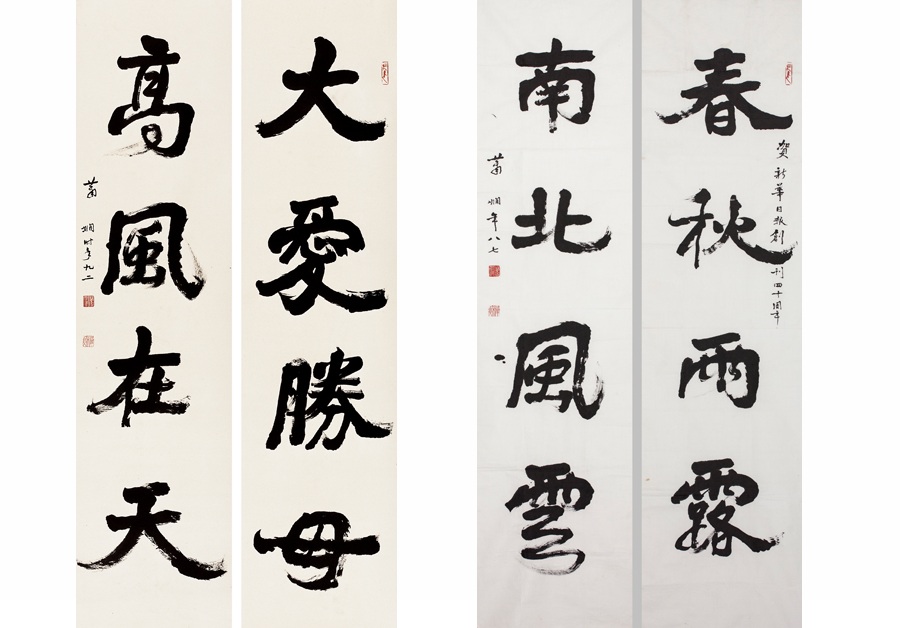 春秋雨露
賀新華日报創刊四十周年
南北風雲
蕭嫻年八七
大愛勝母
高風在天
蕭嫻时年九二